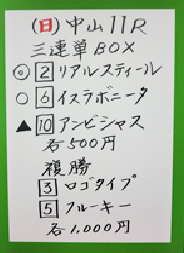 (日)中山11R
三連単BOX
◎ 2 リアルスティール
○ 6 イスラボニータ
▲ 10 アンビシャス
各500円
複勝
3 ロゴタイプ
5 クルーキー
各1,000円